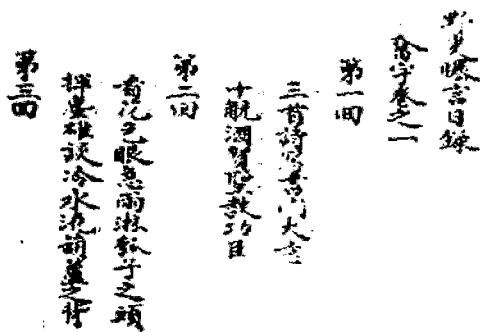 野叟曝言目錄
奮字卷之一
第一回
三首詩寫書門大意
十觥酒賀聖教功臣
第二回
看花眼急雨淋瓢子之頭
揮麈雄談冷水澆葫蘆之背
第三回